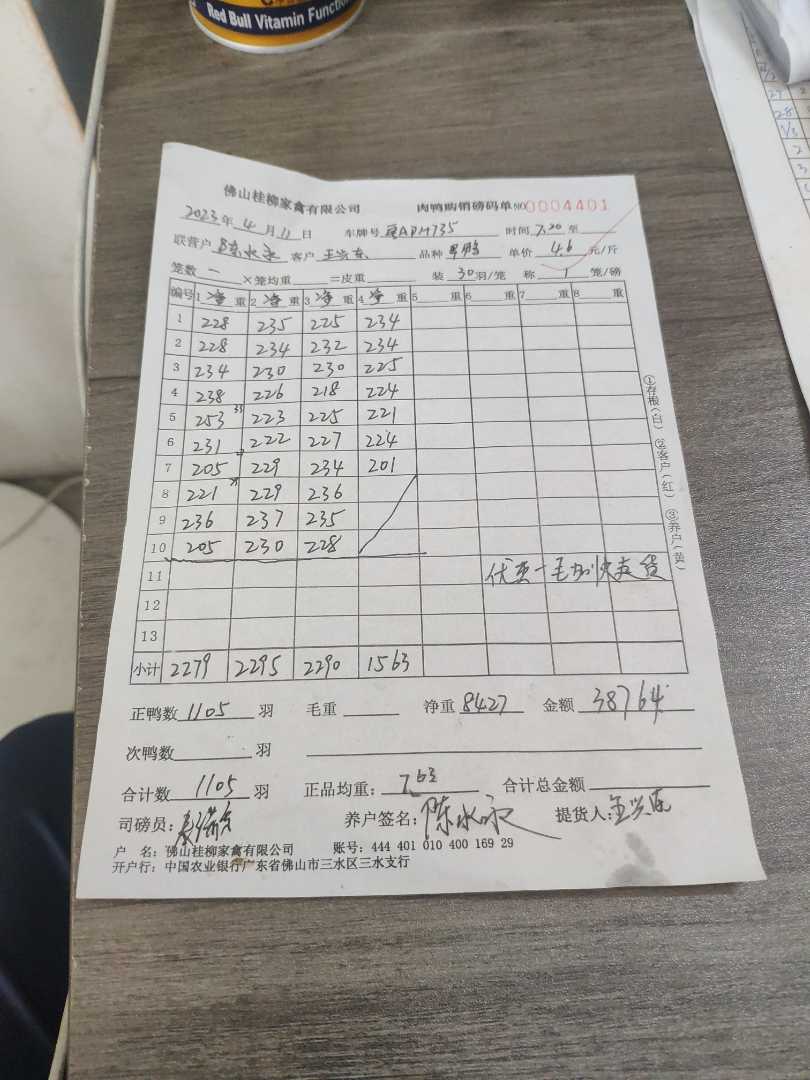 Red Bull Vitamin Functio
佛山桂柳家禽有限公司 肉鸭购销磅码单 NO 0004401
2023年 4月 11日 车牌号 APM735 时间 7.20 至
联营户 陈水永 客户 王兴东 品种 单价 4.6 元/斤
笼数 一 ×笼均重 =皮重 装 30 羽/笼 称 1 笼/磅
编号 1 净 重 2 净 重 3 净 重 4 净 重 5 重 6 重 7 重 8 重
1 228 235 225 234
2 228 234 232 234
3 234 230 230 225
4 238 226 218 224
5 253 33 223 225 221
6 231 222 227 224
7 205 229 234 201
8 221 229 236
9 236 237 235
10 205 230 228
11 优惠一毛
12
13
小计 2279 2295 2290 1563
①存根(白) ②客户(红) ③养户(黄)
正鸭数 1105 羽 毛重 净重 8427 金额 38764
次鸭数 羽
合计数 1105 羽 正品均重: 7.63 合计总金额
司磅员: 养户签名: 陈水永 提货人: 王兴东
户 名: 佛山桂柳家禽有限公司 账号: 444 401 010 400 169 29
开户行: 中国农业银行广东省佛山市三水区三水支行